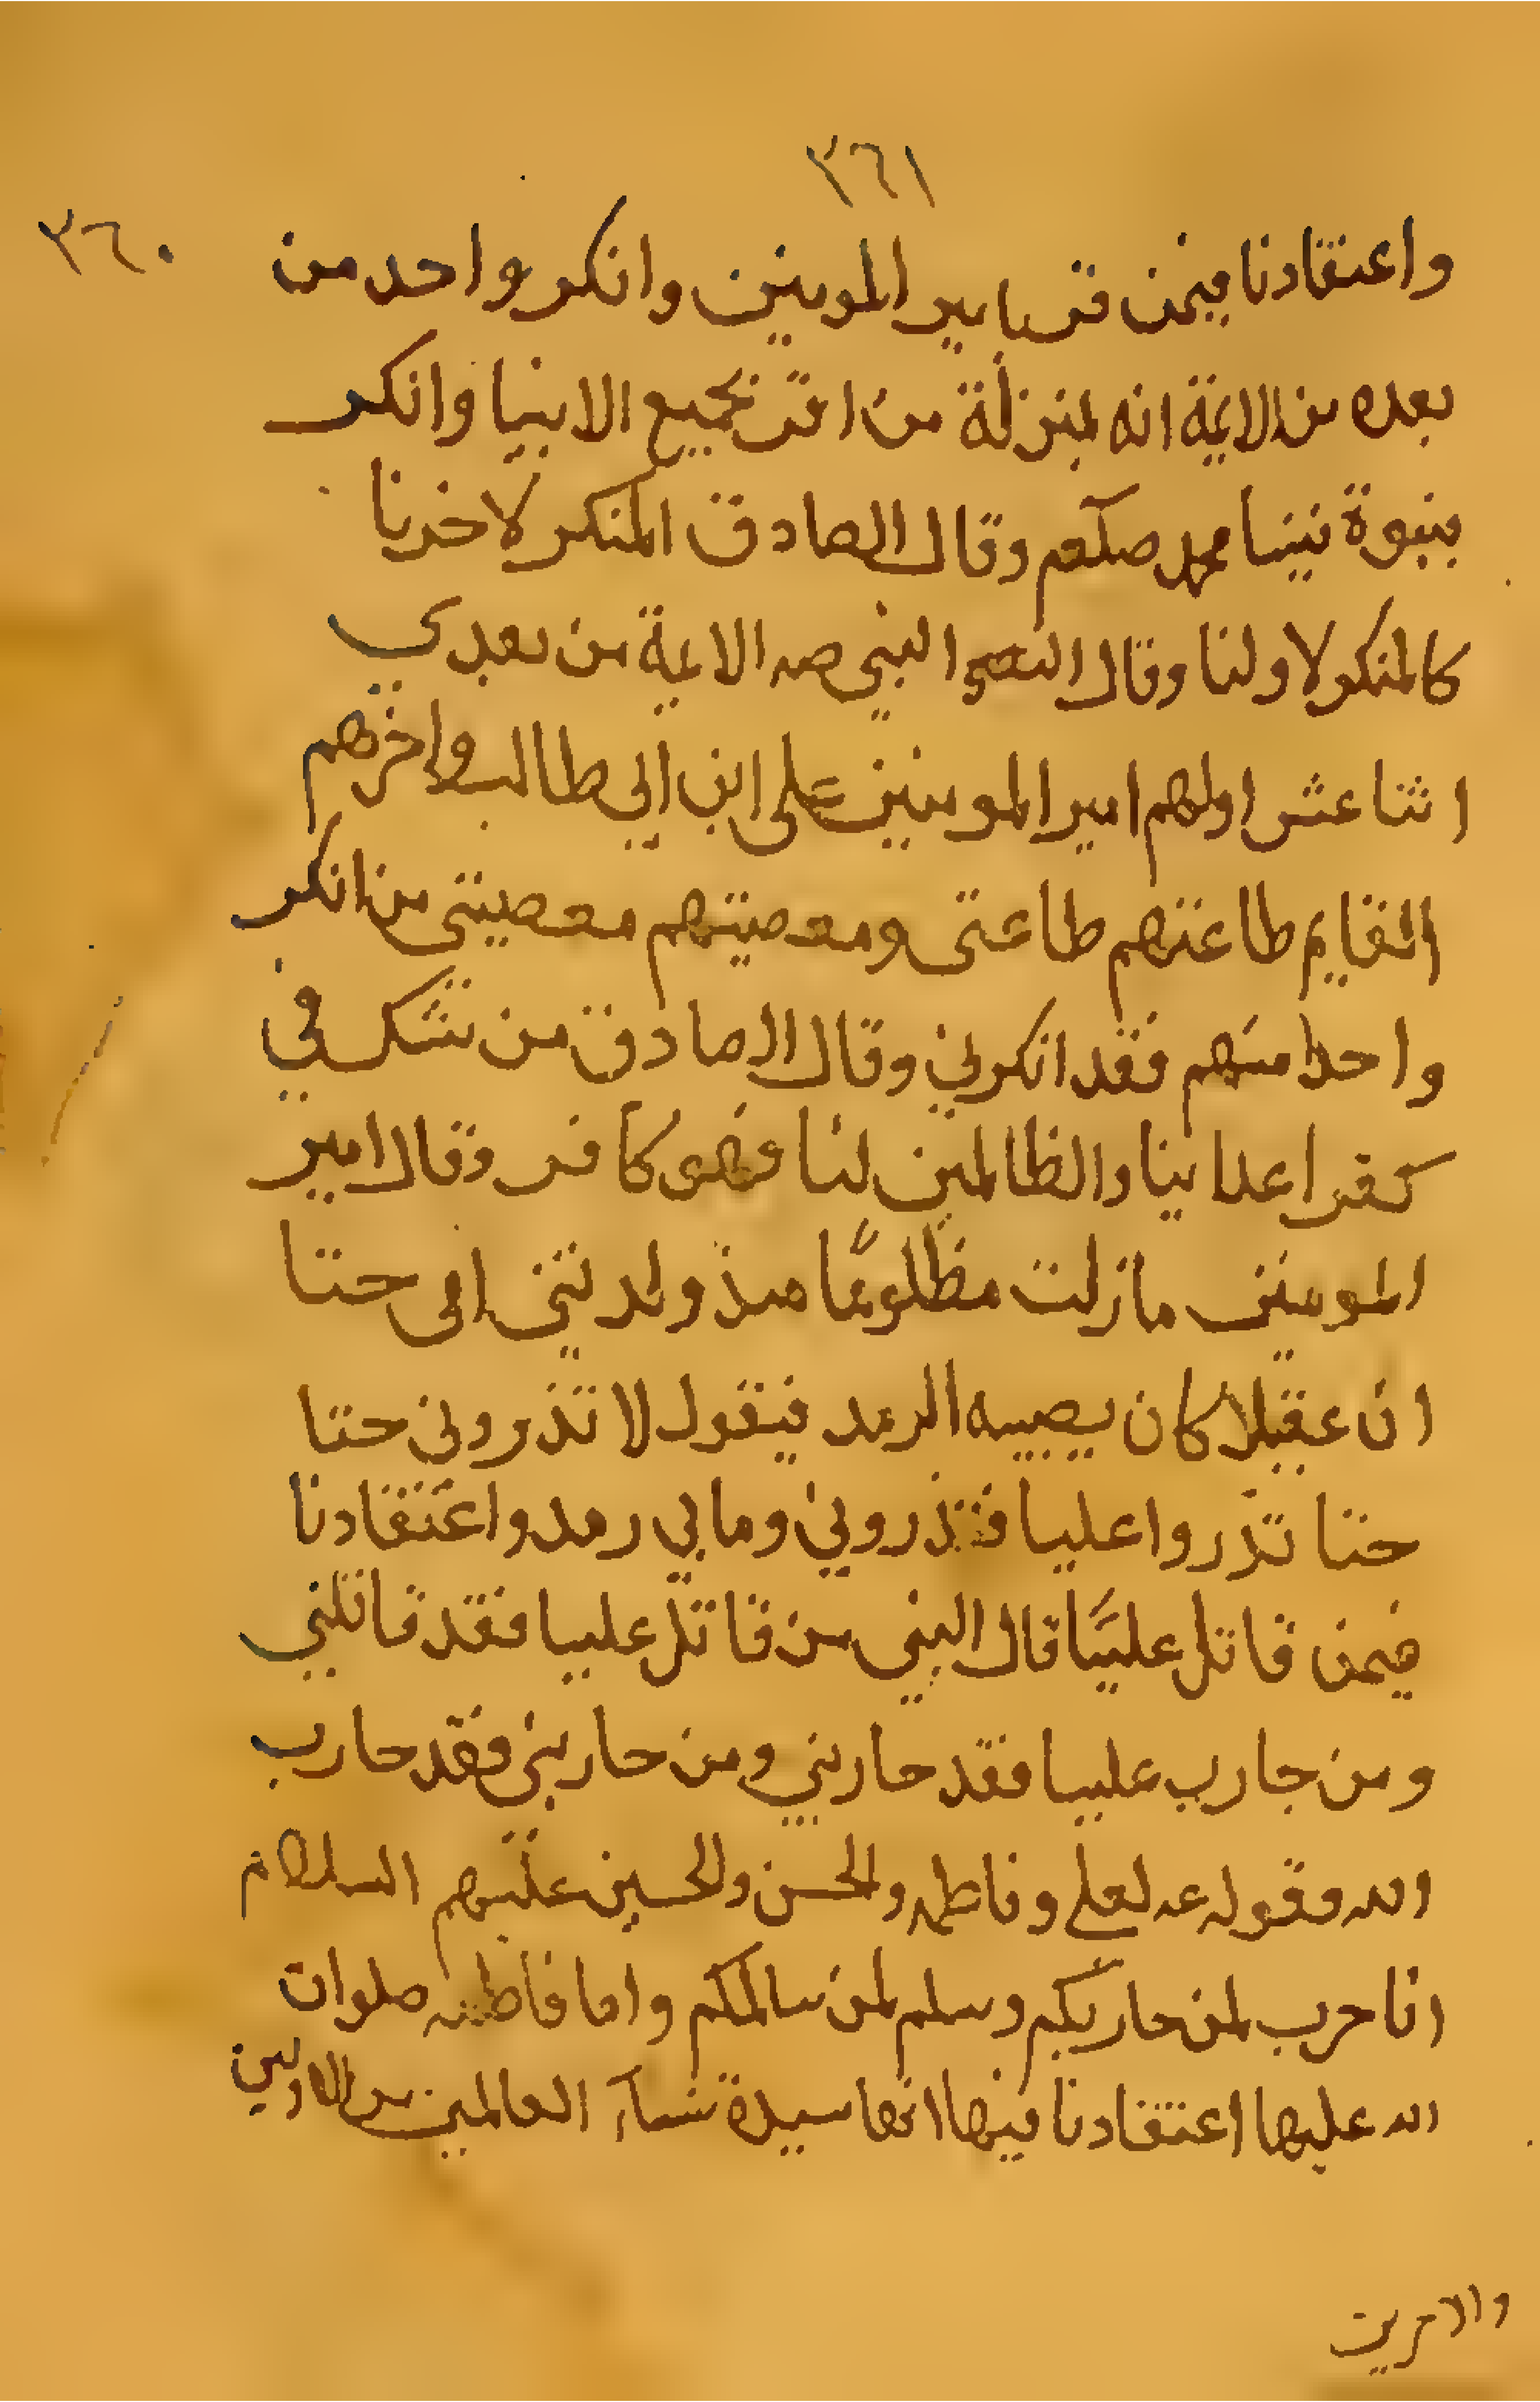 ٣٦١
٣٦٠
واعتقادنا فيمن اقر بامير المومنين وانكر واحد من
بعده من الايمة انه بمنزلة من اقر بجميع الانبيا وانكر
بنبوة نبينا محمد صلعم وقال الصادق المنكر لاخرنا
كالمنكر لاولنا وقال النبي صه الايمة من بعدي
اثنا عشر اولهم امير المومنين على ابن ابي طالب واخرهم
القايم طاعتهم طاعتى ومعصيتهم معصيتى من انكر
واحدا منهم فقد انكرني وقال الصادق من شك في
كفر اعداينا والظالمين لنا فهو كافر وقال امير
المومنين مازلت مظلومًا منذ ولدتنى امى حتا
ان عقيلا كان يصيبه الرمد فيقول لا تذروني حتا
حتا تذروا عليا فتذروني وما بي رمد واعتقادنا
فيمن قاتل عليًا قال النبى من قاتل عليا فقد قاتلني
ومن حارب عليا فقد حاربني ومن حاربنى فقد حارب
الله وقوله عه لعلي وفاطمه والحسن والحسين عليهم السلام
انا حرب لمن حاربكم وسلم لمن سالمكم واما فاطمه صلوات
الله عليها اعتقادنا فيها انها سيدة نساء العالمين من الاولين
والاخرين